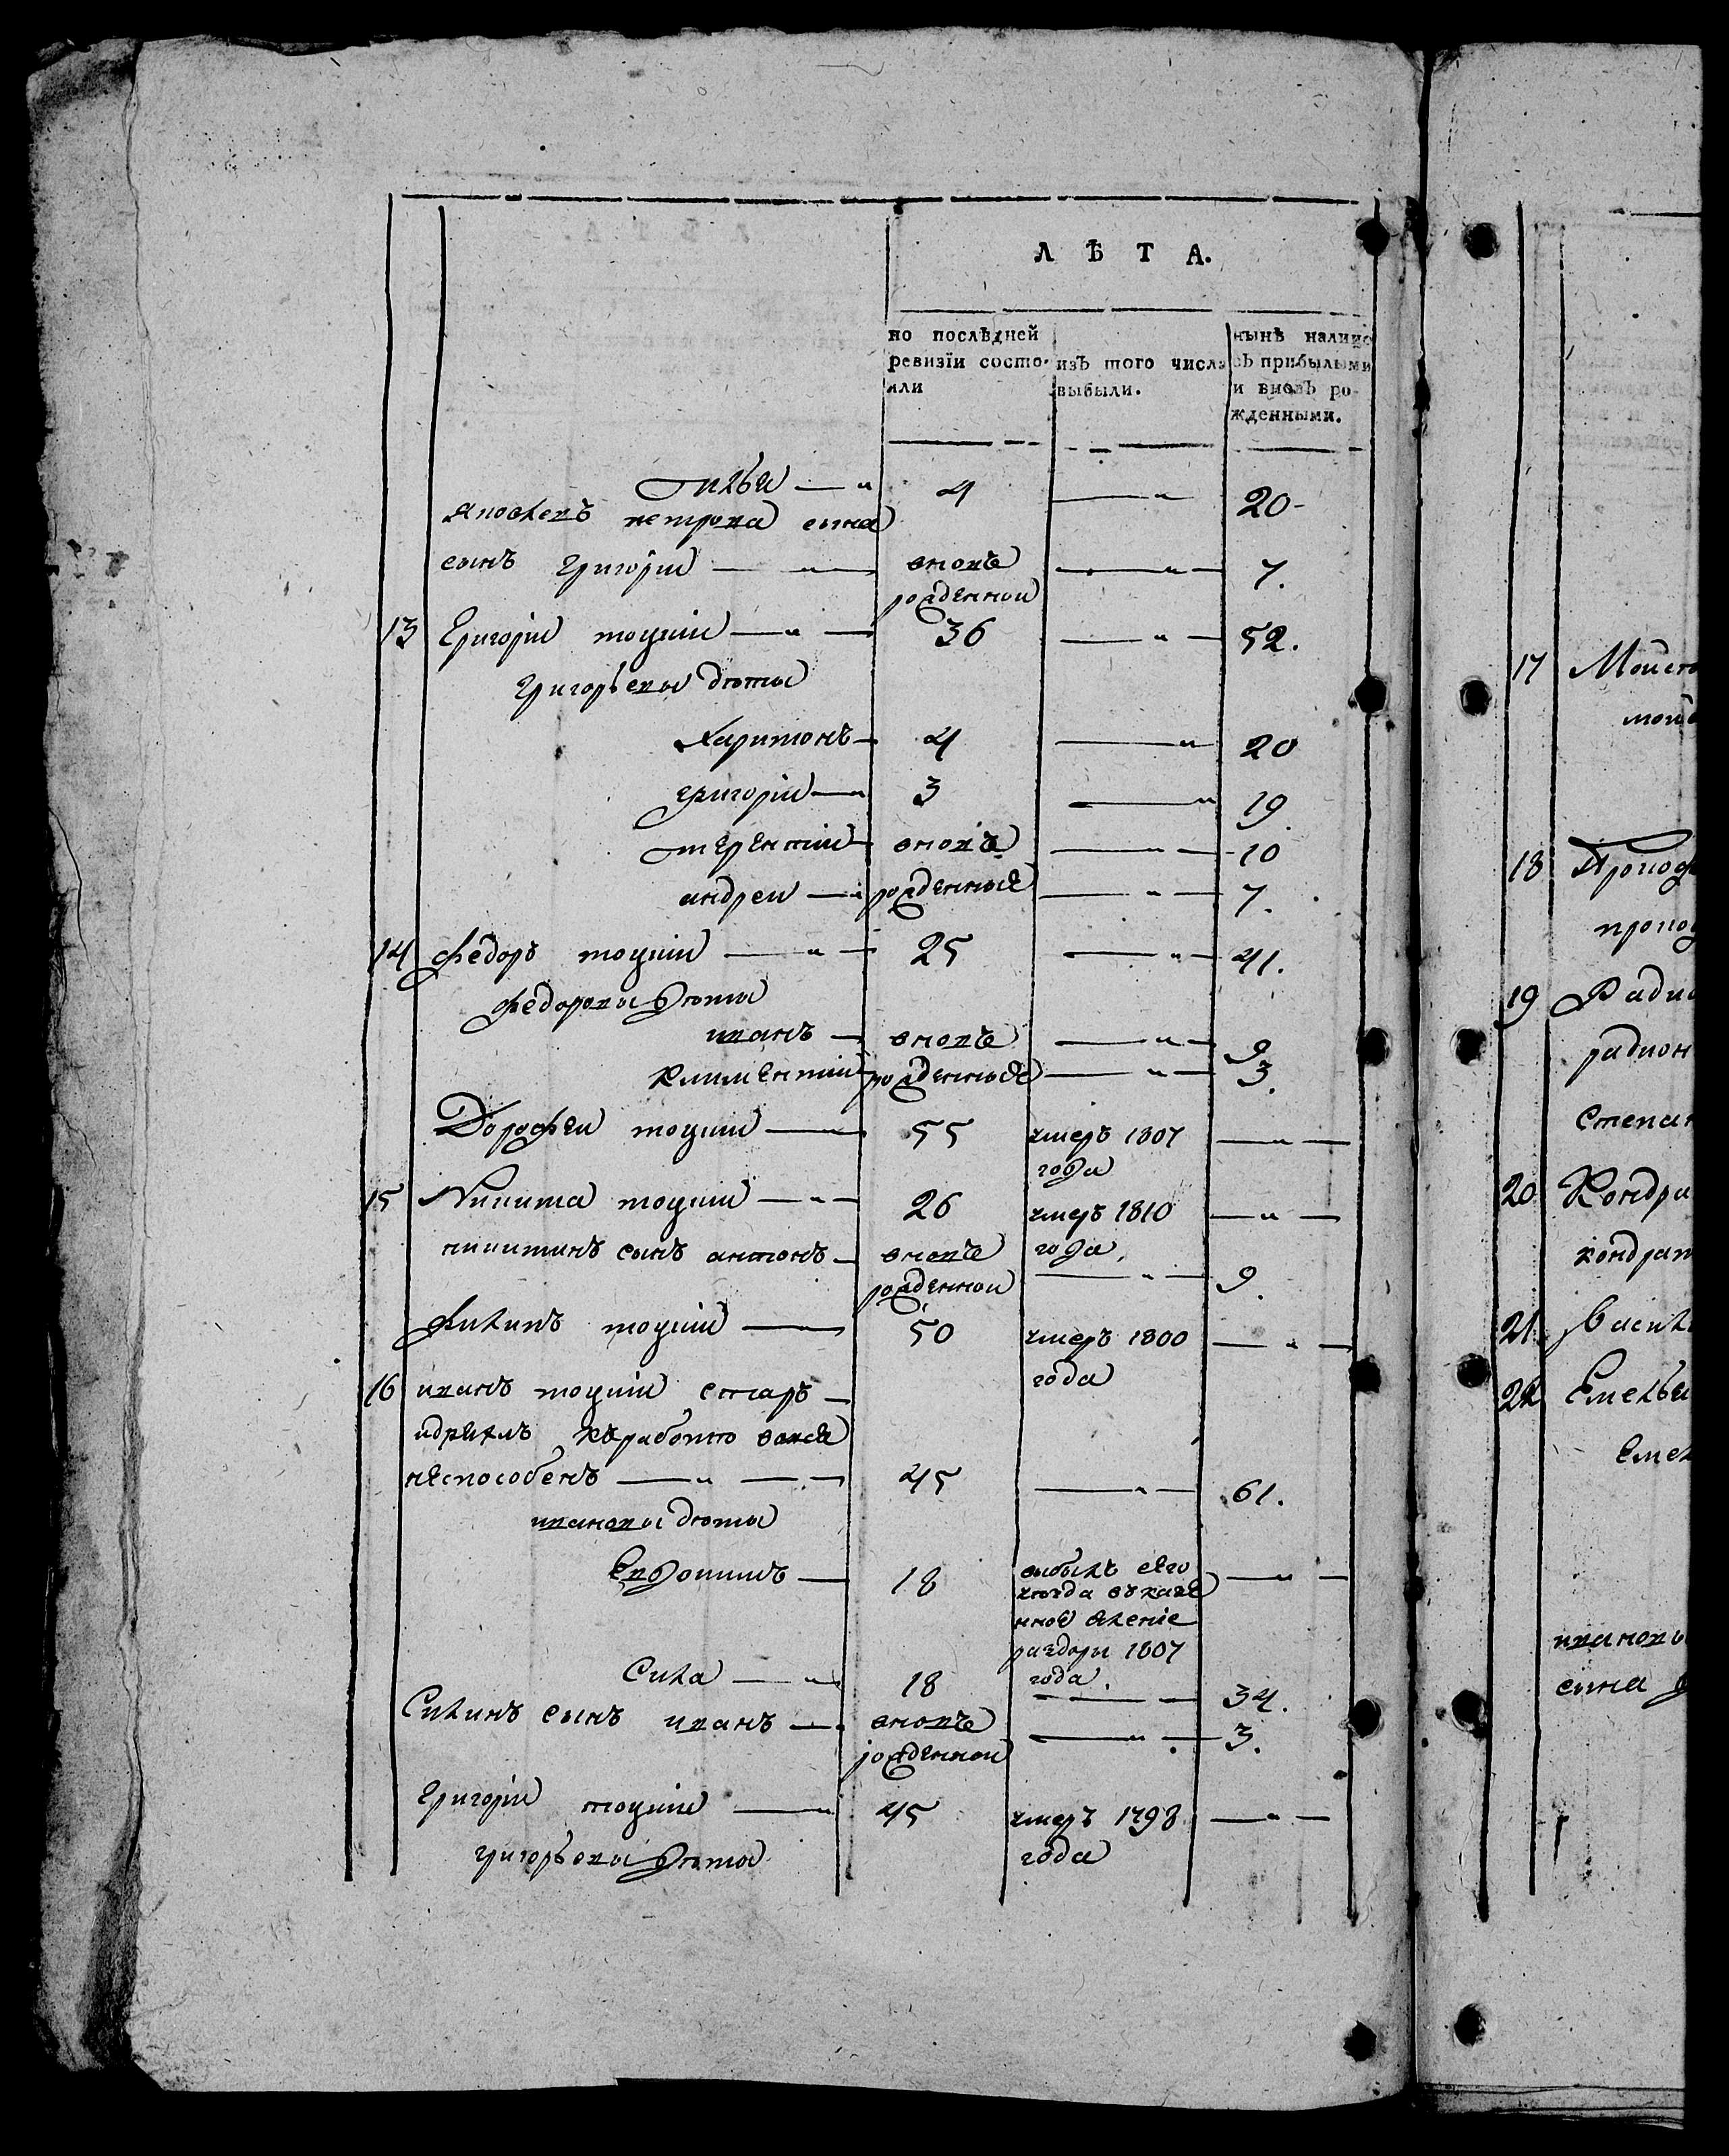 ЛѢТА.
по послѣдней
ревизіи состо-
яли
изъ того числа
выбыли.
нынѣ налицо
съ прибылыми
и вновь ро-
жденными.
илья — „ 4 — „ 20-
яковлевъ петрова сына
сынъ григорій — „ — вновѣ — „ — 7.
рожденнои
13 Григорій тоцкій — „ — 36 — „ — 52.
григорьевы дѣти
харитонъ — 4 — „ 20
григорій — „ 3 — „ 19.
терентій — вновѣ — „ — 10
андреи — рожденные — „ — 7.
14 федоръ тоцкій — „ — 25 — „ — 41.
федоровы дѣти
иванъ — вновѣ — „ — 9
климентій рожденные — „ — 3.
Дорофеи тоцкій — 55 умеръ 1807 — „ —
года
15 Никита тоцкій — „ — 26 умеръ 1810 — „ —
никитинъ сынъ антонъ — вновѣ года.
рожденнои — „ — 9.
филипъ тоцкій — 50 умеръ 1800 — „ —
года
16 иванъ тоцкій старъ —
идряхлъ кработѣ вовсе
неспособенъ — „ — 45 — „ — 61.
ивановы дѣти
Евдокимъ — 18 выбылъ — „ —
нное
1807
Сила — „ 18 года. — 34.
Силинъ сынъ иванъ — вновѣ — „ — 3.
рожденнои
григорій тоцкій — 45 умеръ 1798 — „ —
григорьевы дѣти года
17 Моисе
мои
18 Прокоф
прокоф
19 Радио
радион
Степан
20 Кондра
кондрат
21 Васил
22 Емелья
Емел
ивановы
сына